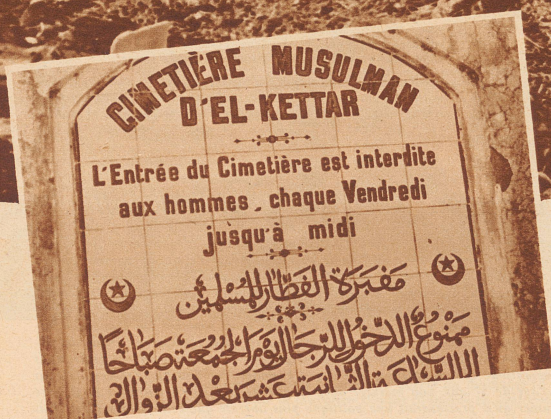 CIMETIÈRE MUSULMAN
D'EL-KETTAR
L'Entrée du Cimetière est interdite
aux hommes, chaque Vendredi
jusqu'à midi
مَقبَرَة القَطَّار لِلمُسْلِمِين
مَمنُوعُ الدُّخُول لِلرِّجَال يَوْمَ الجُمعَة صَبَاحًا
السَّاعَة الثَّانِيَة عَشَر بَعْدَ الزَّوَال